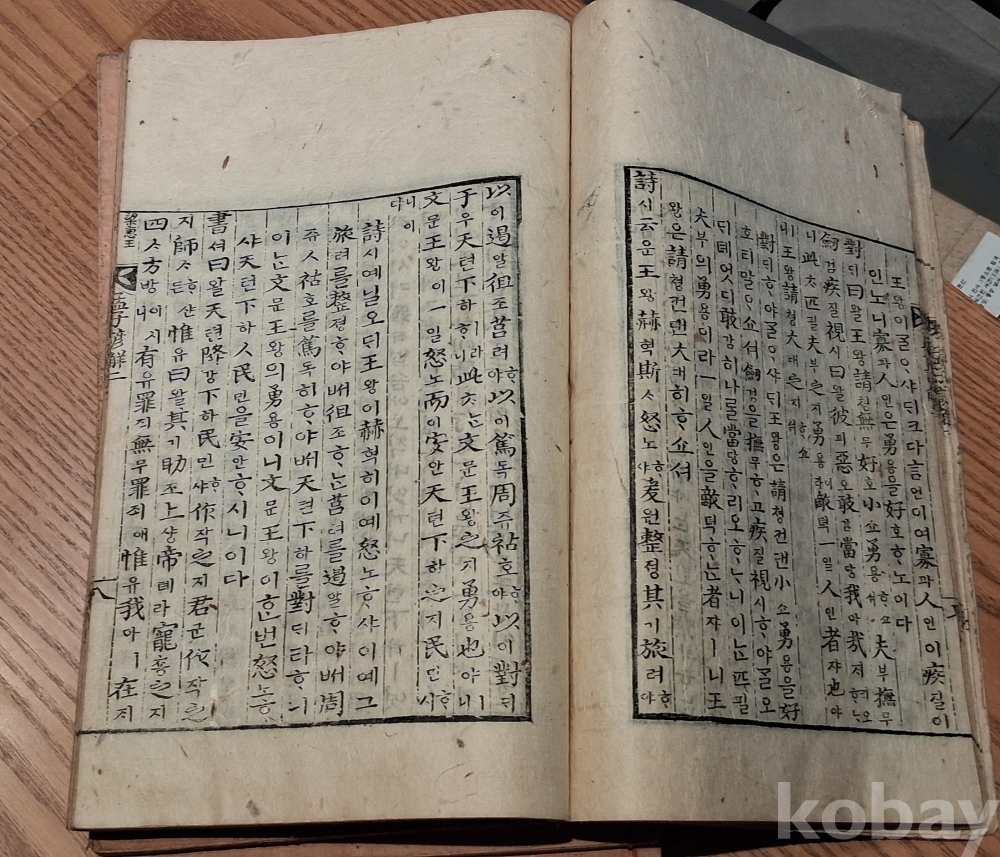 王왕이ᄀᆞᆯᄋᆞ샤ᄃᆡ크다言언이여寡과人인이疾질이
인노니寡과人인은勇용을好호ᄒᆞ노이다
對ᄃᆡ曰왈王왕請쳥無무好호小쇼勇용ᄒᆞ쇼셔夫부撫무
劒검疾질視시曰왈彼피惡오敢감當당我아哉ᄌᆡ리오ᄒᆞᄂᆞ
니此ᄎᆞ匹필夫부之지勇용이라敵뎍一일人인者쟈也야
ㅣ니王왕請쳥大대之지ᄒᆞ쇼셔
對ᄃᆡᄒᆞ야ᄀᆞᆯᄋᆞ샤ᄃᆡ王왕은請쳥컨댄小쇼勇용을好
호티말ᄋᆞ쇼셔劒검을撫무ᄒᆞ고疾질視시ᄒᆞ야ᄀᆞᆯ오
ᄃᆡ뎨엇디敢감히나ᄅᆞᆯ當당ᄒᆞ리오ᄒᆞᄂᆞ니이ᄂᆞᆫ匹필
夫부의勇용이라一일人인을敵뎍ᄒᆞᄂᆞᆫ者쟈ㅣ니王
왕은請쳥컨댄大대히ᄒᆞ쇼셔
詩시云운王왕赫혁斯ᄉᆞ怒노ᄒᆞ샤爰원整졍其기旅려ᄒᆞ야
以이遏알徂조莒려ᄒᆞ야以이篤독周쥬祜호ᄒᆞ야以이對ᄃᆡ
于우天텬下하ㅣ라ᄒᆞ니此ᄎᆞᄂᆞᆫ文문王왕之지勇용也야ㅣ니
文문王왕이一일怒노而이安안天텬下하之지民민ᄒᆞ시
니이다
詩시예닐오ᄃᆡ王왕이赫혁히이예怒노ᄒᆞ샤이예그
旅려를整졍ᄒᆞ야ᄡᅥ徂조ᄒᆞᄂᆞᆫ莒려를遏알ᄒᆞ야ᄡᅥ周
쥬ㅅ祜호를篤독히ᄒᆞ야ᄡᅥ天텬下하를對ᄃᆡ타ᄒᆞ니
이ᄂᆞᆫ文문王왕의勇용이니文문王왕이ᄒᆞᆫ번怒노ᄒᆞ
샤天텬下하ㅅ民민을安안ᄒᆞ시니이다
書셔曰왈天텬降강下하民민ᄒᆞ샤作작之지君군作작之
지師ᄉᆞᄒᆞ샨ᄃᆞᆫ惟유曰왈其기助조上샹帝뎨라寵춍之지
四ᄉᆞ方방이시니有유罪죄無무罪죄애惟유我아ㅣ在ᄌᆡ
梁惠王
孟子諺解二
十八
kobay